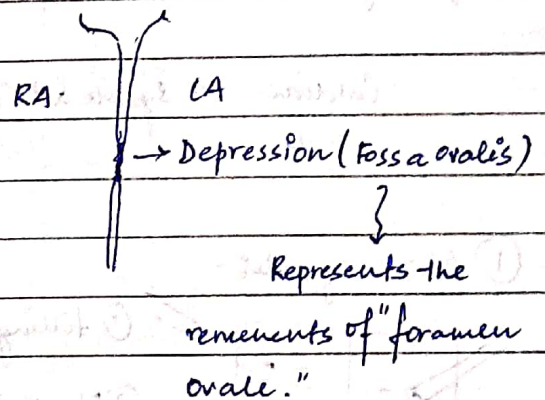 RA. LA
→ Depression (Fossa ovalis)
Represents the
remenents of "foramen
ovale."